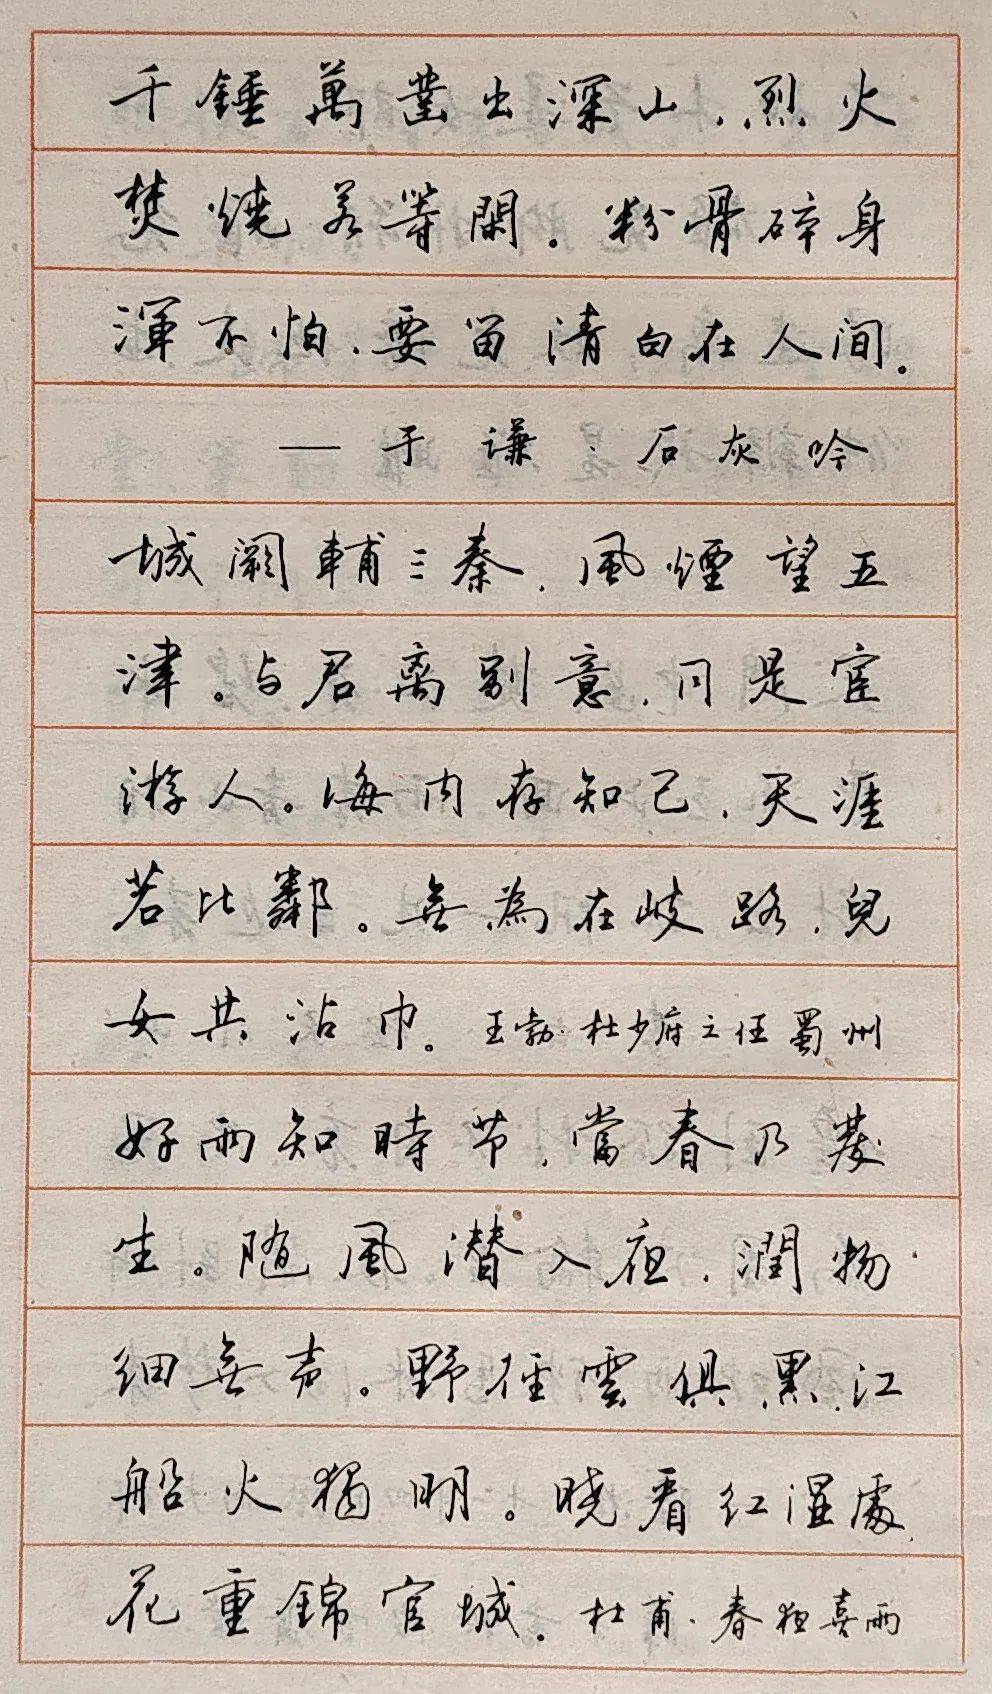 千錘萬鑿出深山，烈火
焚燒若等閑。粉骨碎身
渾不怕，要留清白在人间。
——于谦·石灰吟
城阙輔三秦，風煙望五
津。与君离别意，同是宦
游人。海内存知己，天涯
若比鄰。無為在岐路，兒
女共沾巾。王勃·杜少府之任蜀州
好雨知時节，當春乃發
生。随風潜入夜，潤物
细無声。野徑雲俱黑，江
船火獨明。晓看红濕處，
花重錦官城。杜甫·春夜喜雨